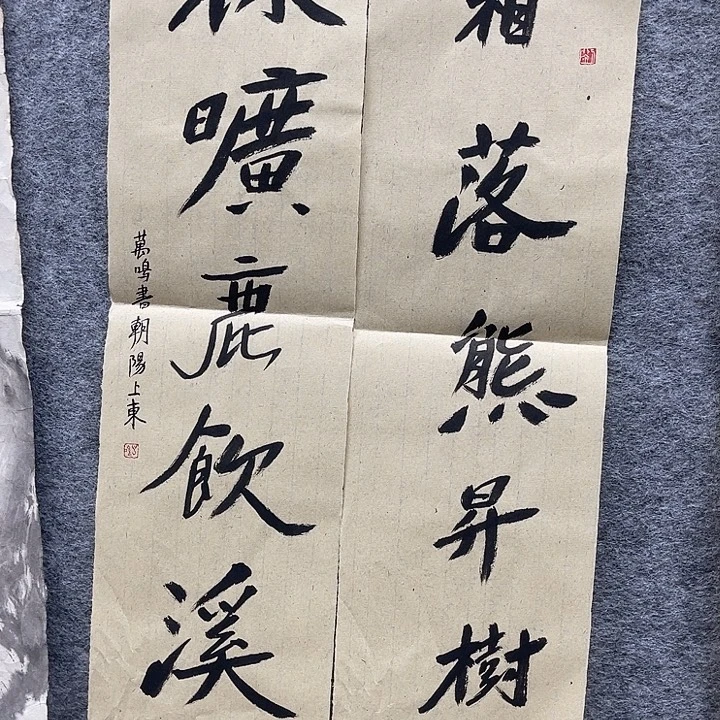 霜落熊昇樹
曠鹿飲溪
萬鳴書朝陽上東